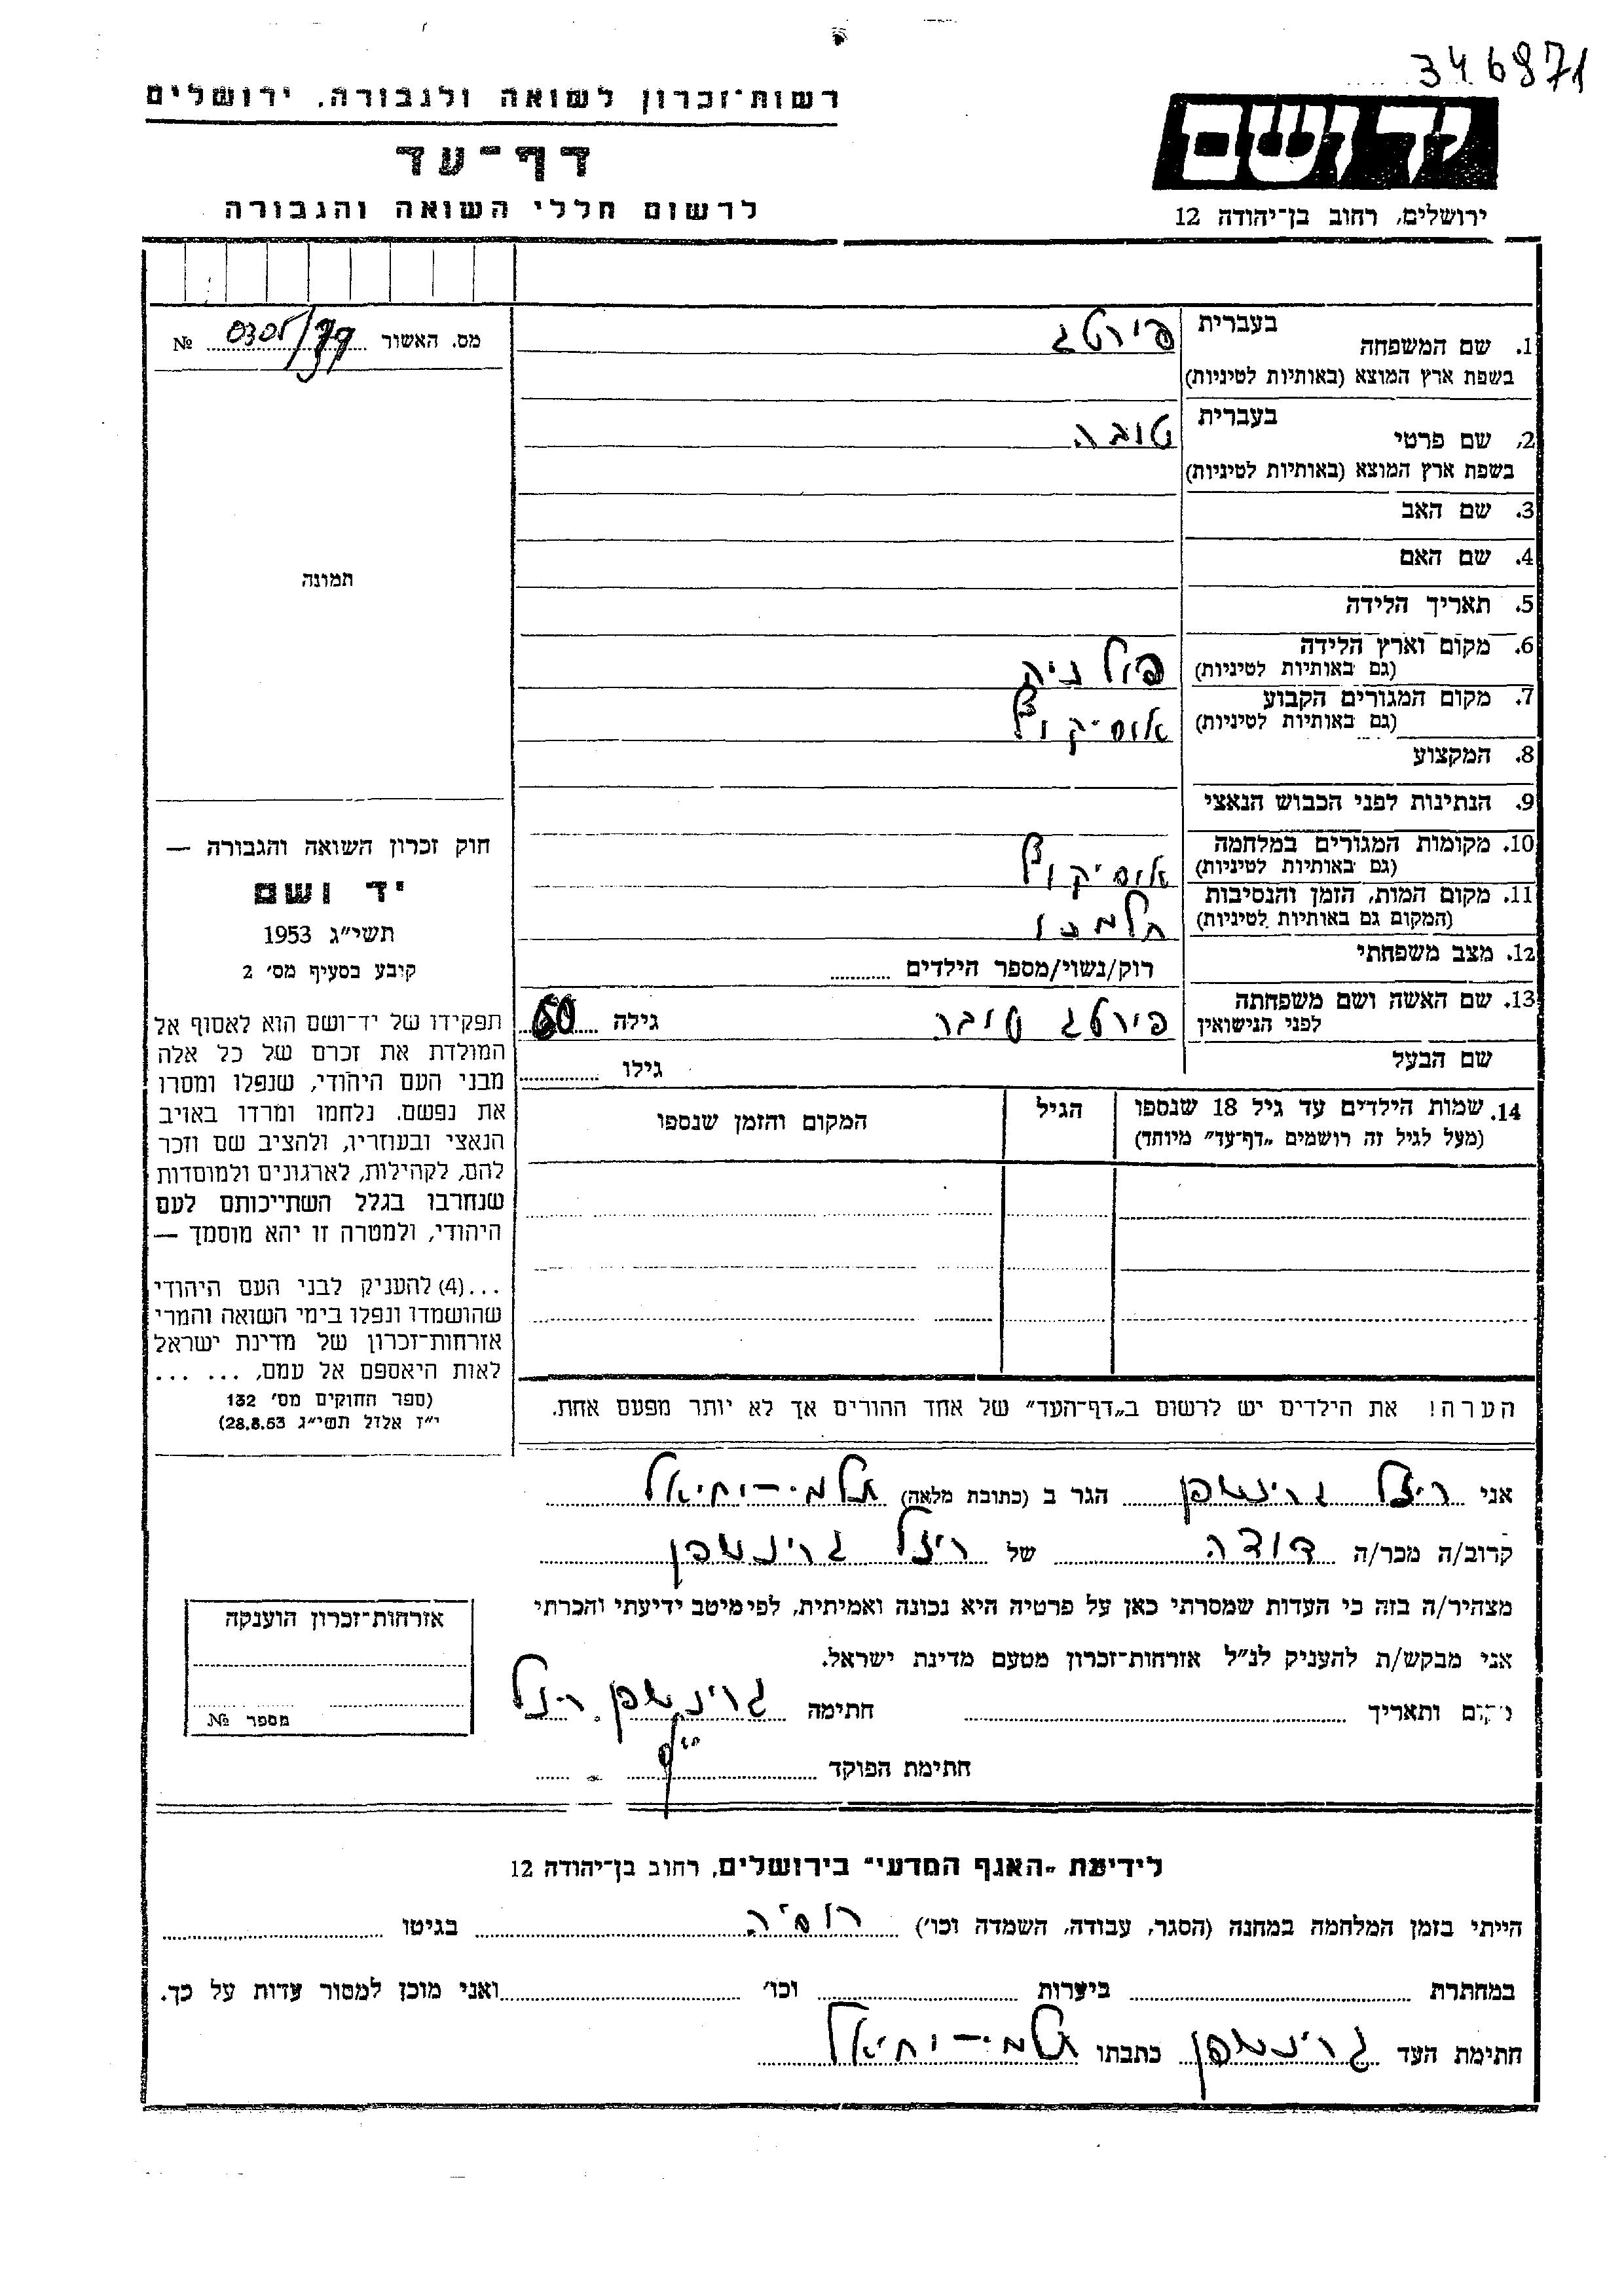 346971
רשות־זכרון לשואה ולגבורה, ירושלים
דף־עד
לרשום חללי השואה והגבורה
יד ושם
ירושלים, רחוב בן־יהודה 12
מס. האשור № 0305/79
1. שם המשפחה בעברית פירטג
בשפת ארץ המוצא (באותיות לטיניות)
2. שם פרטי בעברית טובה
בשפת ארץ המוצא (באותיות לטיניות)
3. שם האב
4. שם האם
5. תאריך הלידה
6. מקום וארץ הלידה פולניה
(גם באותיות לטיניות)
7. מקום המגורים הקבוע אוסיקוץ
(גם באותיות לטיניות)
8. המקצוע
9. הנתינות לפני הכבוש הנאצי
10. מקומות המגורים במלחמה אוסיקוץ
(גם באותיות לטיניות)
11. מקום המות, הזמן והנסיבות חלמנו
(המקום גם באותיות לטיניות)
12. מצב משפחתי רוק/נשוי/מספר הילדים
13. שם האשה ושם משפחתה פירטג טובה גילה 50
לפני הנישואין
שם הבעל גילו
14. שמות הילדים עד גיל 18 שנספו הגיל המקום והזמן שנספו
(מעל לגיל זה רושמים "דף־עד" מיוחד)
הערה! את הילדים יש לרשום ב"דף־העד" של אחד ההורים אך לא יותר מפעם אחת.
תמונה
חוק זכרון השואה והגבורה —
יד ושם
תשי"ג 1953
קובע בסעיף מס' 2
תפקידו של יד־ושם הוא לאסוף אל
המולדת את זכרם של כל אלה
מבני העם היהודי, שנפלו ומסרו
את נפשם, נלחמו ומרדו באויב
הנאצי ובעוזריו, ולהציב שם וזכר
להם, לקהילות, לארגונים ולמוסדות
שנחרבו בגלל השתייכותם לעם
היהודי, ולמטרה זו יהא מוסמך —
...(4) להעניק לבני העם היהודי
שהושמדו ונפלו בימי השואה והמרי
אזרחות־זכרון של מדינת ישראל
לאות היאספם אל עמם, ... ...
(ספר החוקים מס' 132
י"ז אלול תשי"ג 28.8.53)
אני ריזל גרינשפן הגר ב (כתובת מלאה) תלמי־יחיאל
קרוב/ה מכר/ה דודה של ריזל גרינשפן
מצהיר/ה בזה כי העדות שמסרתי כאן על פרטיה היא נכונה ואמיתית, לפי מיטב ידיעתי והכרתי
אני מבקש/ת להעניק לנ"ל אזרחות־זכרון מטעם מדינת ישראל.
מקום ותאריך חתימה גרינשפן ריזל
חתימת הפוקד
אזרחות־זכרון הוענקה
מספר №
לידיעת "האגף המדעי" בירושלים, רחוב בן־יהודה 12
הייתי בזמן המלחמה במחנה (הסגר, עבודה, השמדה וכו') רוסיה בגיטו
במחתרת ביערות וכו' ואני מוכן למסור עדות על כך.
חתימת העד גרינשפן כתבתו תלמי־יחיאל